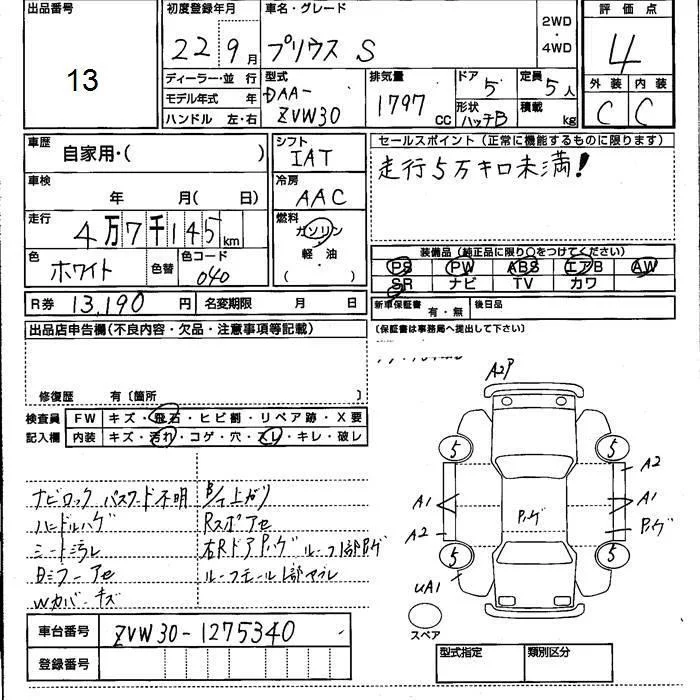 出品番号
13
初度登録年月
22 9月
車名・グレード
プリウス S
2WD
・
4WD
評価点
4
外装 内装
C C
ディーラー・並行
モデル年式 年
ハンドル 左・右
型式
DAA-
ZVW30
排気量
1797
CC
ドア
5
形状
ハッチB
定員
5人
積載
kg
車歴
自家用・( )
車検
年 月( 日)
走行
4万7千145km
色
ホワイト
色替
色コード
040
シフト
IAT
冷房
AAC
燃料
ガソリン
・
軽・油
( )
セールスポイント(正常に機能するものに限ります)
走行5万キロ未満!
装備品(純正品に限り○をつけてください)
PS PW ABS エアB AW
SR ナビ TV カワ
R券 13,190円
名変期限 月 日
新車保証書
有・無
後日品
(保証書は事務局へ提出して下さい)
出品店申告欄(不良内容・欠品・注意事項等記載)
修復歴 有〔箇所 〕
検査員
記入欄
FW キズ・飛石・ヒビ割・リペア跡・X要
内装 キズ・汚れ・コゲ・穴・スレ・キレ・破レ
ナビロック パスワード不明
ハンドルハゲ
シート汚レ
Wカバーキズ
Rスポアセ
右Rドア Pハゲ ルーフ1部Pハゲ
A2P
5
5
A2
A1
A1
Pハゲ
Pハゲ
A2
5
5
UA1
スペア
車台番号
ZVW30-1275340
登録番号
型式指定 類別区分